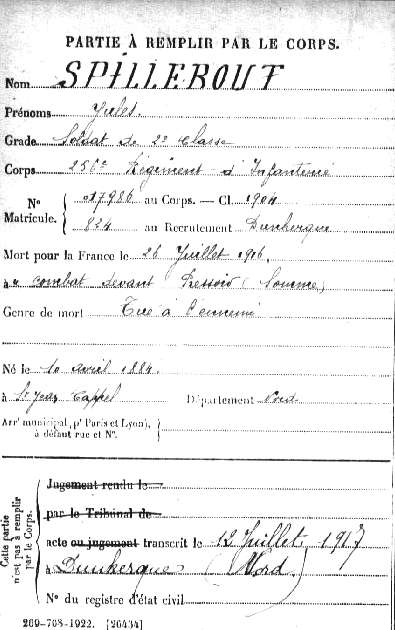 PARTIE À REMPLIR PAR LE CORPS.
Nom SPILLEBOUT
Prénoms Jules.
Grade Soldat de 2e Classe
Corps 256e Régiment d'Infanterie
No Matricule. { 017986 au Corps. — Cl. 1904
824 au Recrutement Dunkerque
Mort pour la France le 26 Juillet 1916
à combat devant (Somme)
Genre de mort Tué à l'ennemi
Né le 10 avril 1884.
à St Jans Cappel Département Nord
Arrt municipal (pr Paris et Lyon), à défaut rue et No.
Cette partie n'est pas à remplir par le Corps.
Jugement rendu le
par le Tribunal de
acte ou jugement transcrit le 12 Juillet, 1917
à Dunkerque (Nord)
No du registre d'état civil
269-708-1922. [26434]